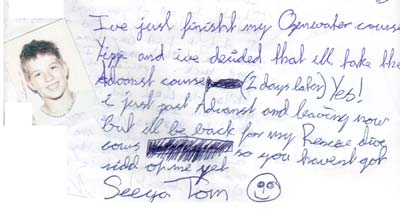 Ive just finisht my Openwater course
Yipp and ive decided that ill take the
Advanst course (2 days later) Yes!
i just past Advanst and leaving now
but ill be back for my Rescue dive
cours so you havent got
ridd of me yet
Seeya Tom